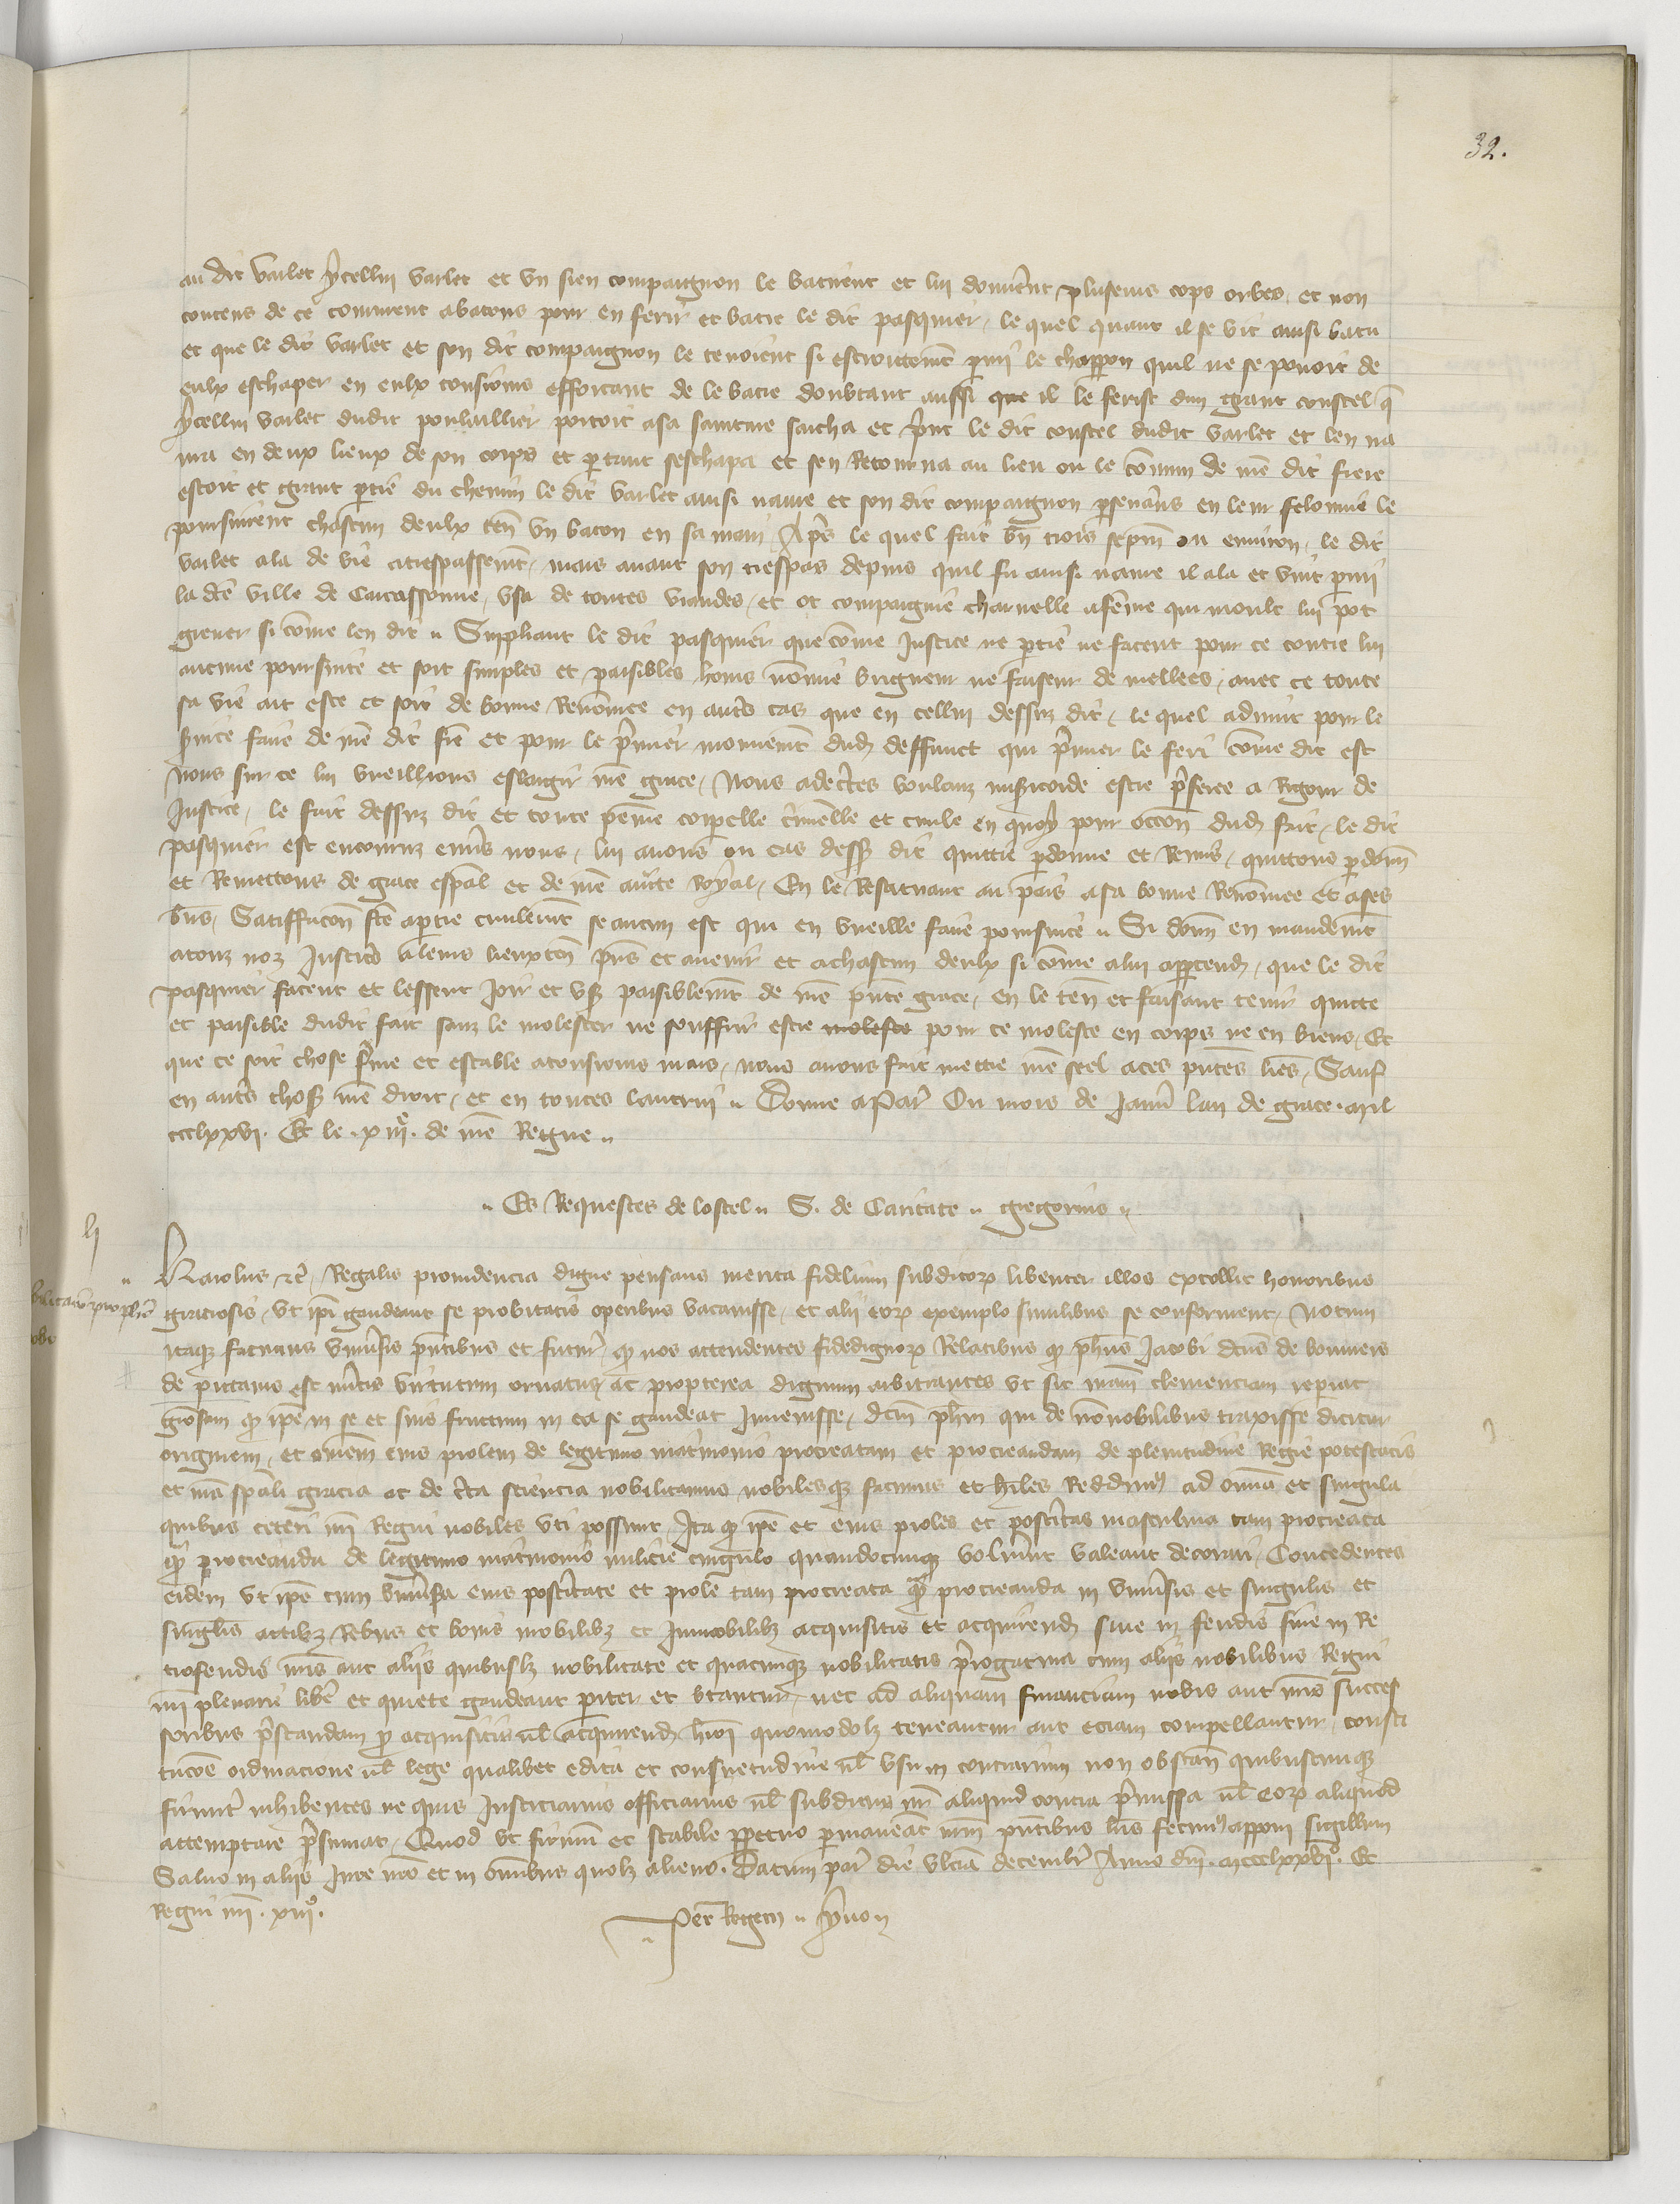 32.
au dit varlet ycellui varlet et vn sien compaignon le batirent et lui donnerent plusieurs cops orbes et non
contens de ce coururent abatons pour en ferir et batre le dit pasquier, le quel quant il se vit ainsi batu
et que le dit varlet et son dit compaignon le tenoient si estroittemt parmi le chappon quil ne se pouoit de
eulx eschaper en eulx tousiours efforcant de le batre doubtant aussi que il le ferist dun grant coustel q̃
ycellui varlet dudit poulaillier portoit asa sainture sacha et print le dit coustel dudit varlet et len na
ura en deux lieux de son corps et partant seschapa et sen Retourna au lieu ou le commun de nre dit frere
estoit et grant partie du chemin le dit varlet ainsi naure et son dit compaignon perseuerans en leur felonnie le
poursuirent chascun deulx ten vn baton en sa main, Apres le quel fait bn trois sepm ou enuiron, le dit
varlet ala de vie atrespassemt, mais auant son trespas depuis quil fu ainsi naure il ala et vint parmi
la dce ville de Carcassonne, vsa de toutes viandes, et ot compaignie charnelle afeme qui moult lui pot
greuer si come len dit, Suppliant le dit pasquier que come Justice ne partie ne facent pour ce contre lui
aucune poursuite et soit simples et paisibles homs nomie brigueur ne faiseur de mellees, auec ce toute
sa vie ait este et soit de bonne Renomee en autres cas que en cellui dessuz dit, le quel aduint pour le
seruice faire de nre dit fre et pour le premier mouuemt dud deffunct qui premier le feri come dit est
Nous sur ce lui vueillions eslargir nre grace, Nous adecertes voulanz misericorde estre preferee a Rigour de
Justice, le fait dessuz dit et toute peine corporelle criminelle et ciuile en quoy pour occon dud fait, le dit
pasquier est encouruz enuers nous, lui auons ou cas dess dit quittie pardonne et Remis, quittons pardonn
et Remettons de grace espal et de nre aucte Royal, En le Restituant au pais asa bonne Renomee et ases
bns, Satiffacon fte apartie ciuilemt se aucun est qui en vueille faire poursuite, Si donn en mandemt
atouz noz Justic aleurs lieuxten pns et auenir et achascun deulx si come alui appartend, que le dit
pasquier facent et lessent Joir et vs paisiblemt de nre pnte grace, en le ten et faisant tenir quitte
et paisible dudit fait sanz le molester ne souffrir estre moleste pour ce moleste en corps ne en biens, Et
que ce soit chose ferme et estable atousiours mais, nous auons fait mettre nre seel aces pntes lres, Sauf
en autres choses nre droit, et en toutes lautrui, Donne aPar Ou mois de Januier lan de grace mil
ccclxxvi. Et le .xiiie. de nre Regne
Es Requestes de lostel, S. de Caritate, gregorius
lj
Karolus etc, Regalis prouidencia digne pensans merita fidelium subditorum libenter illos extollit honoribus
graciosis, vt ipi gaudeant se probitatis operibus vacauisse, et alij eorum exemplo similibus se conforment, Notum
itaque facimus vniuersis pntibus et futur, quod nos attendentes fidedignorum Relatibus quod phus Jacobi dcus de bonners
de pictauis est multis virtutum ornatus, ac propterea dignum arbitrantes vt sic nram clemenciam reperiat
grosam quod ipe in se et suis fructum in ea se gaudeat Inuenisse, dcm phm qui de nonobilibus traxisse dicitur
originem, et omnem eius prolem de legitimo matrimonio procreatam et procreandam de plenitudine Regie potestatis
et nra spali gracia ac de certa sciencia nobilitamus nobilesque facimus et habiles Reddimus ad omnia et singula
quibus ceteri nri Regni nobiles vti possunt, Ita quod ipe et eius proles et posteritas masculina tam procreata
quam procreanda de legitimo matrimonio milicie cingulo quandocunque voluerint valeant decorari, Concedentes
eidem vt ipe cum vniuersa eius posteritate et prole tam procreata quam procreanda in vniuersis et singulis et
singlis actibus, Rebus et bonis mobilibus et Immobilibus acquisitis et acquirend siue in feudis siue in Re
trofeudis nris aut aliis quibuslibet nobilitate et quacunque nobilitatis prerogatiua cum aliis nobilibus Regni
nri plenarie libere et quiete gaudeant pariter et vtantur, nec ad aliquam financiam nobis aut nris succes
soribus prestandam pro acquisitis vel acquirend huiusmodi quomodolibet teneantur aut eciam compellantur, consti
tucoe ordinacione vel lege qualibet edita et consuetudine vel vsu in contrarium non obstan quibuscunque
firmiter inhibentes ne quis Justiciarius officiarius vel subditus nr aliquid contra premissa vel eorum aliquod
attemptare presumat, Quod vt firmum et stabile perpetuo permaneat nrm pntibus lris fecimus apponi sigillum
Saluo in aliis Jure nro et in omnibus quolibet alieno. Datum par die vltia decembr Anno dni .mccclxxvio. Et
Regni nri .xiiio.
Per Regem, yuon